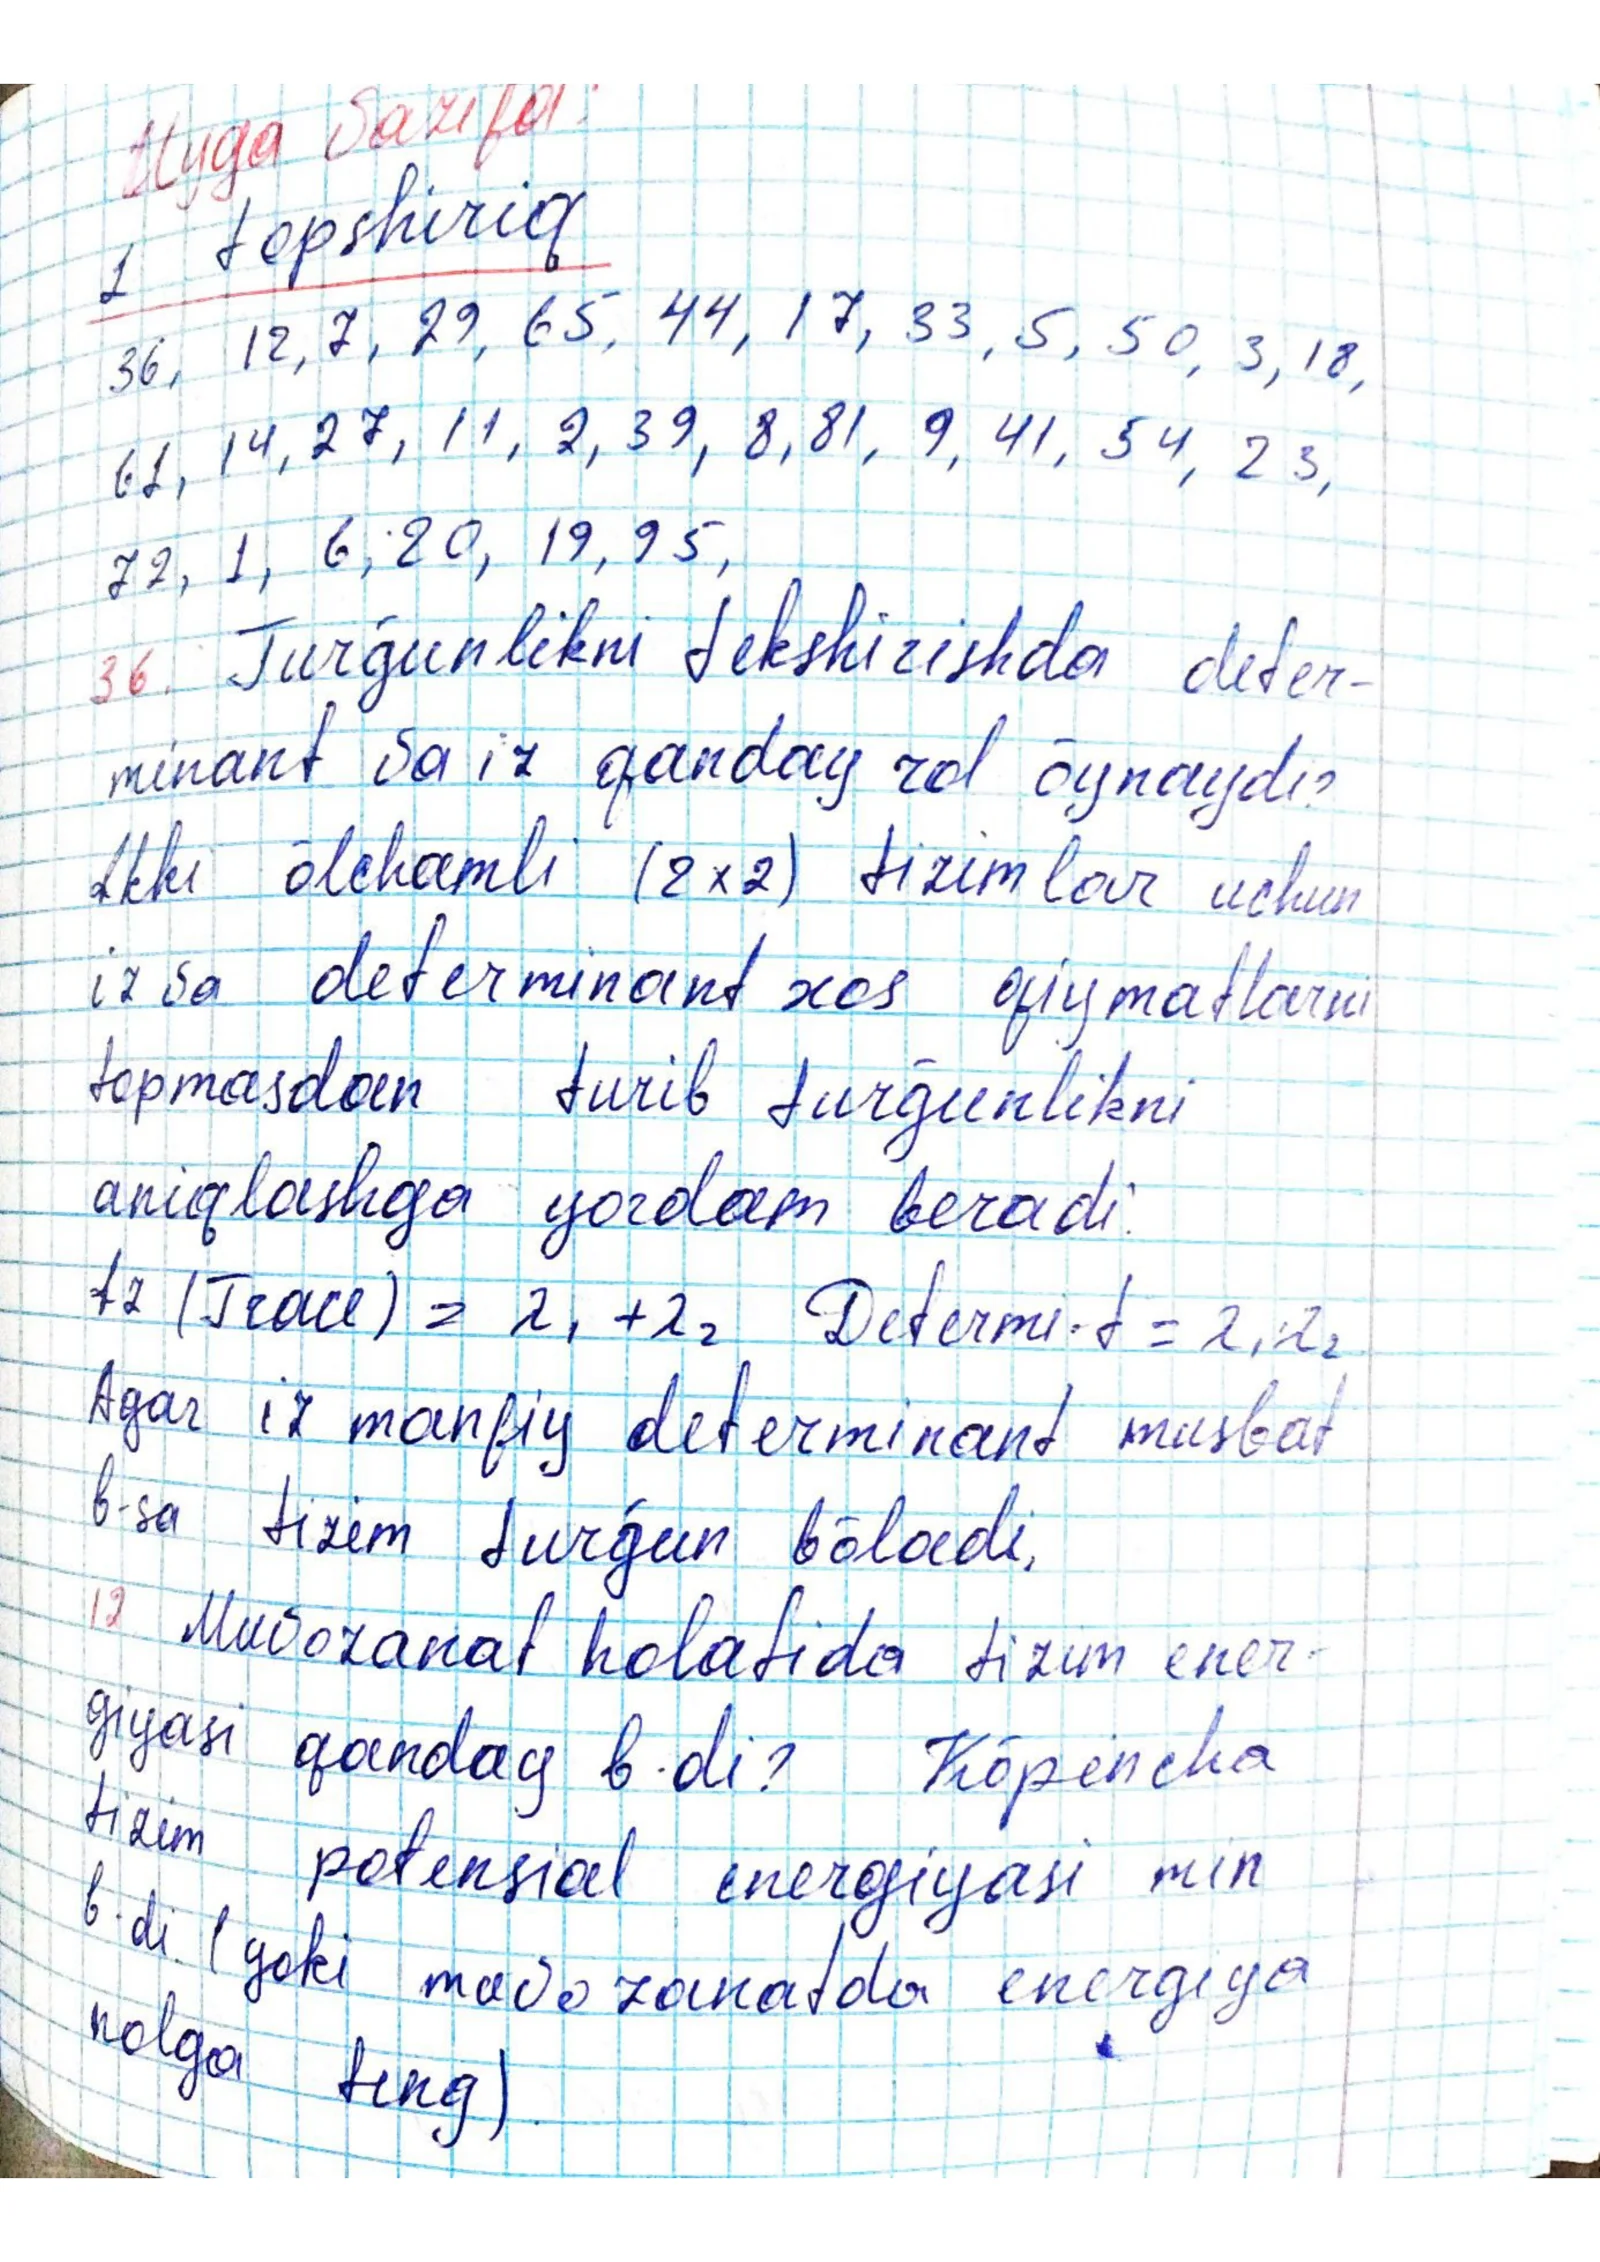 Uyga vazifa:
1 topshiriq
36, 12, 7, 29, 65, 44, 17, 33, 5, 50, 3, 18,
61, 14, 27, 11, 2, 39, 8, 81, 9, 41, 54, 23,
72, 1, 6, 20, 19, 95,
36. Turg̃unlikni tekshirishda deter-
minant va iz qanday rol õynaydi?
Ikki õlchamli (2x2) tizimlar uchun
iz va determinant xos qiymatlarni
topmasdan turib turg̃unlikni
aniqlashga yordam beradi.
tr (Trace) = λ₁ + λ₂ Determi-t = λ₁·λ₂
Agar iz manfiy determinant musbat
b-sa tizim turg̃un bõladi.
12 Muvozanat holatida tizim ener-
giyasi qanday b.di? Kõpincha
tizim potensial energiyasi min
b.di. (yoki muvozanatda energiya
nolga teng).